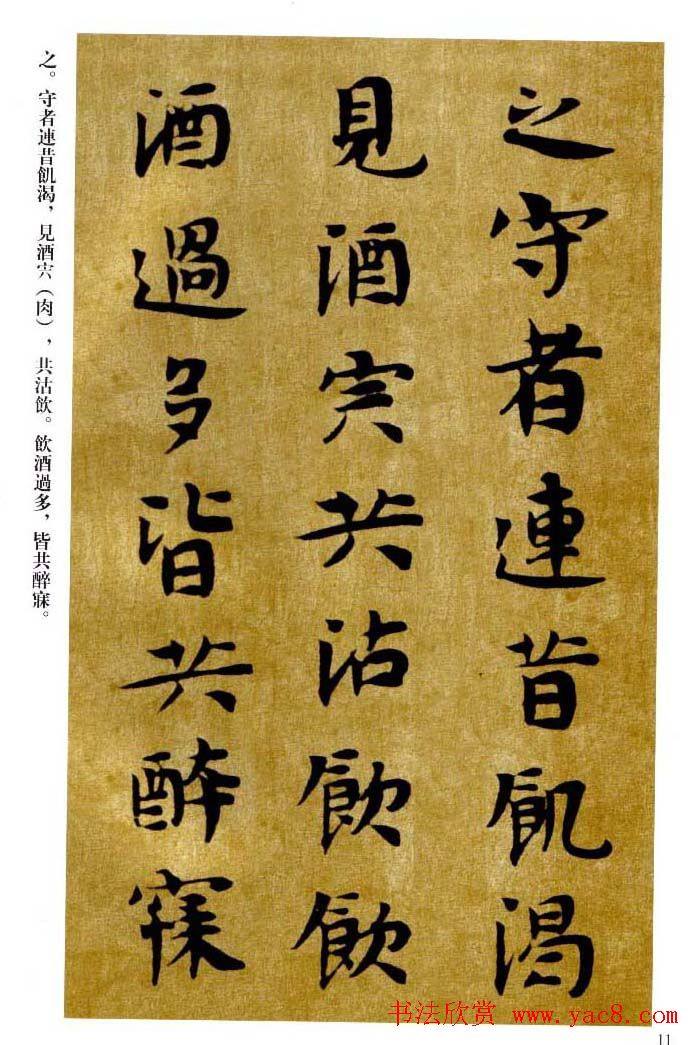 之守者連昔飢渴
見酒宍共沽飲飲
酒過多皆共醉寐
之。守者連昔飢渴，見酒宍（肉），共沽飲。飲酒過多，皆共醉寐。
书法欣赏 www.yac8.com
11